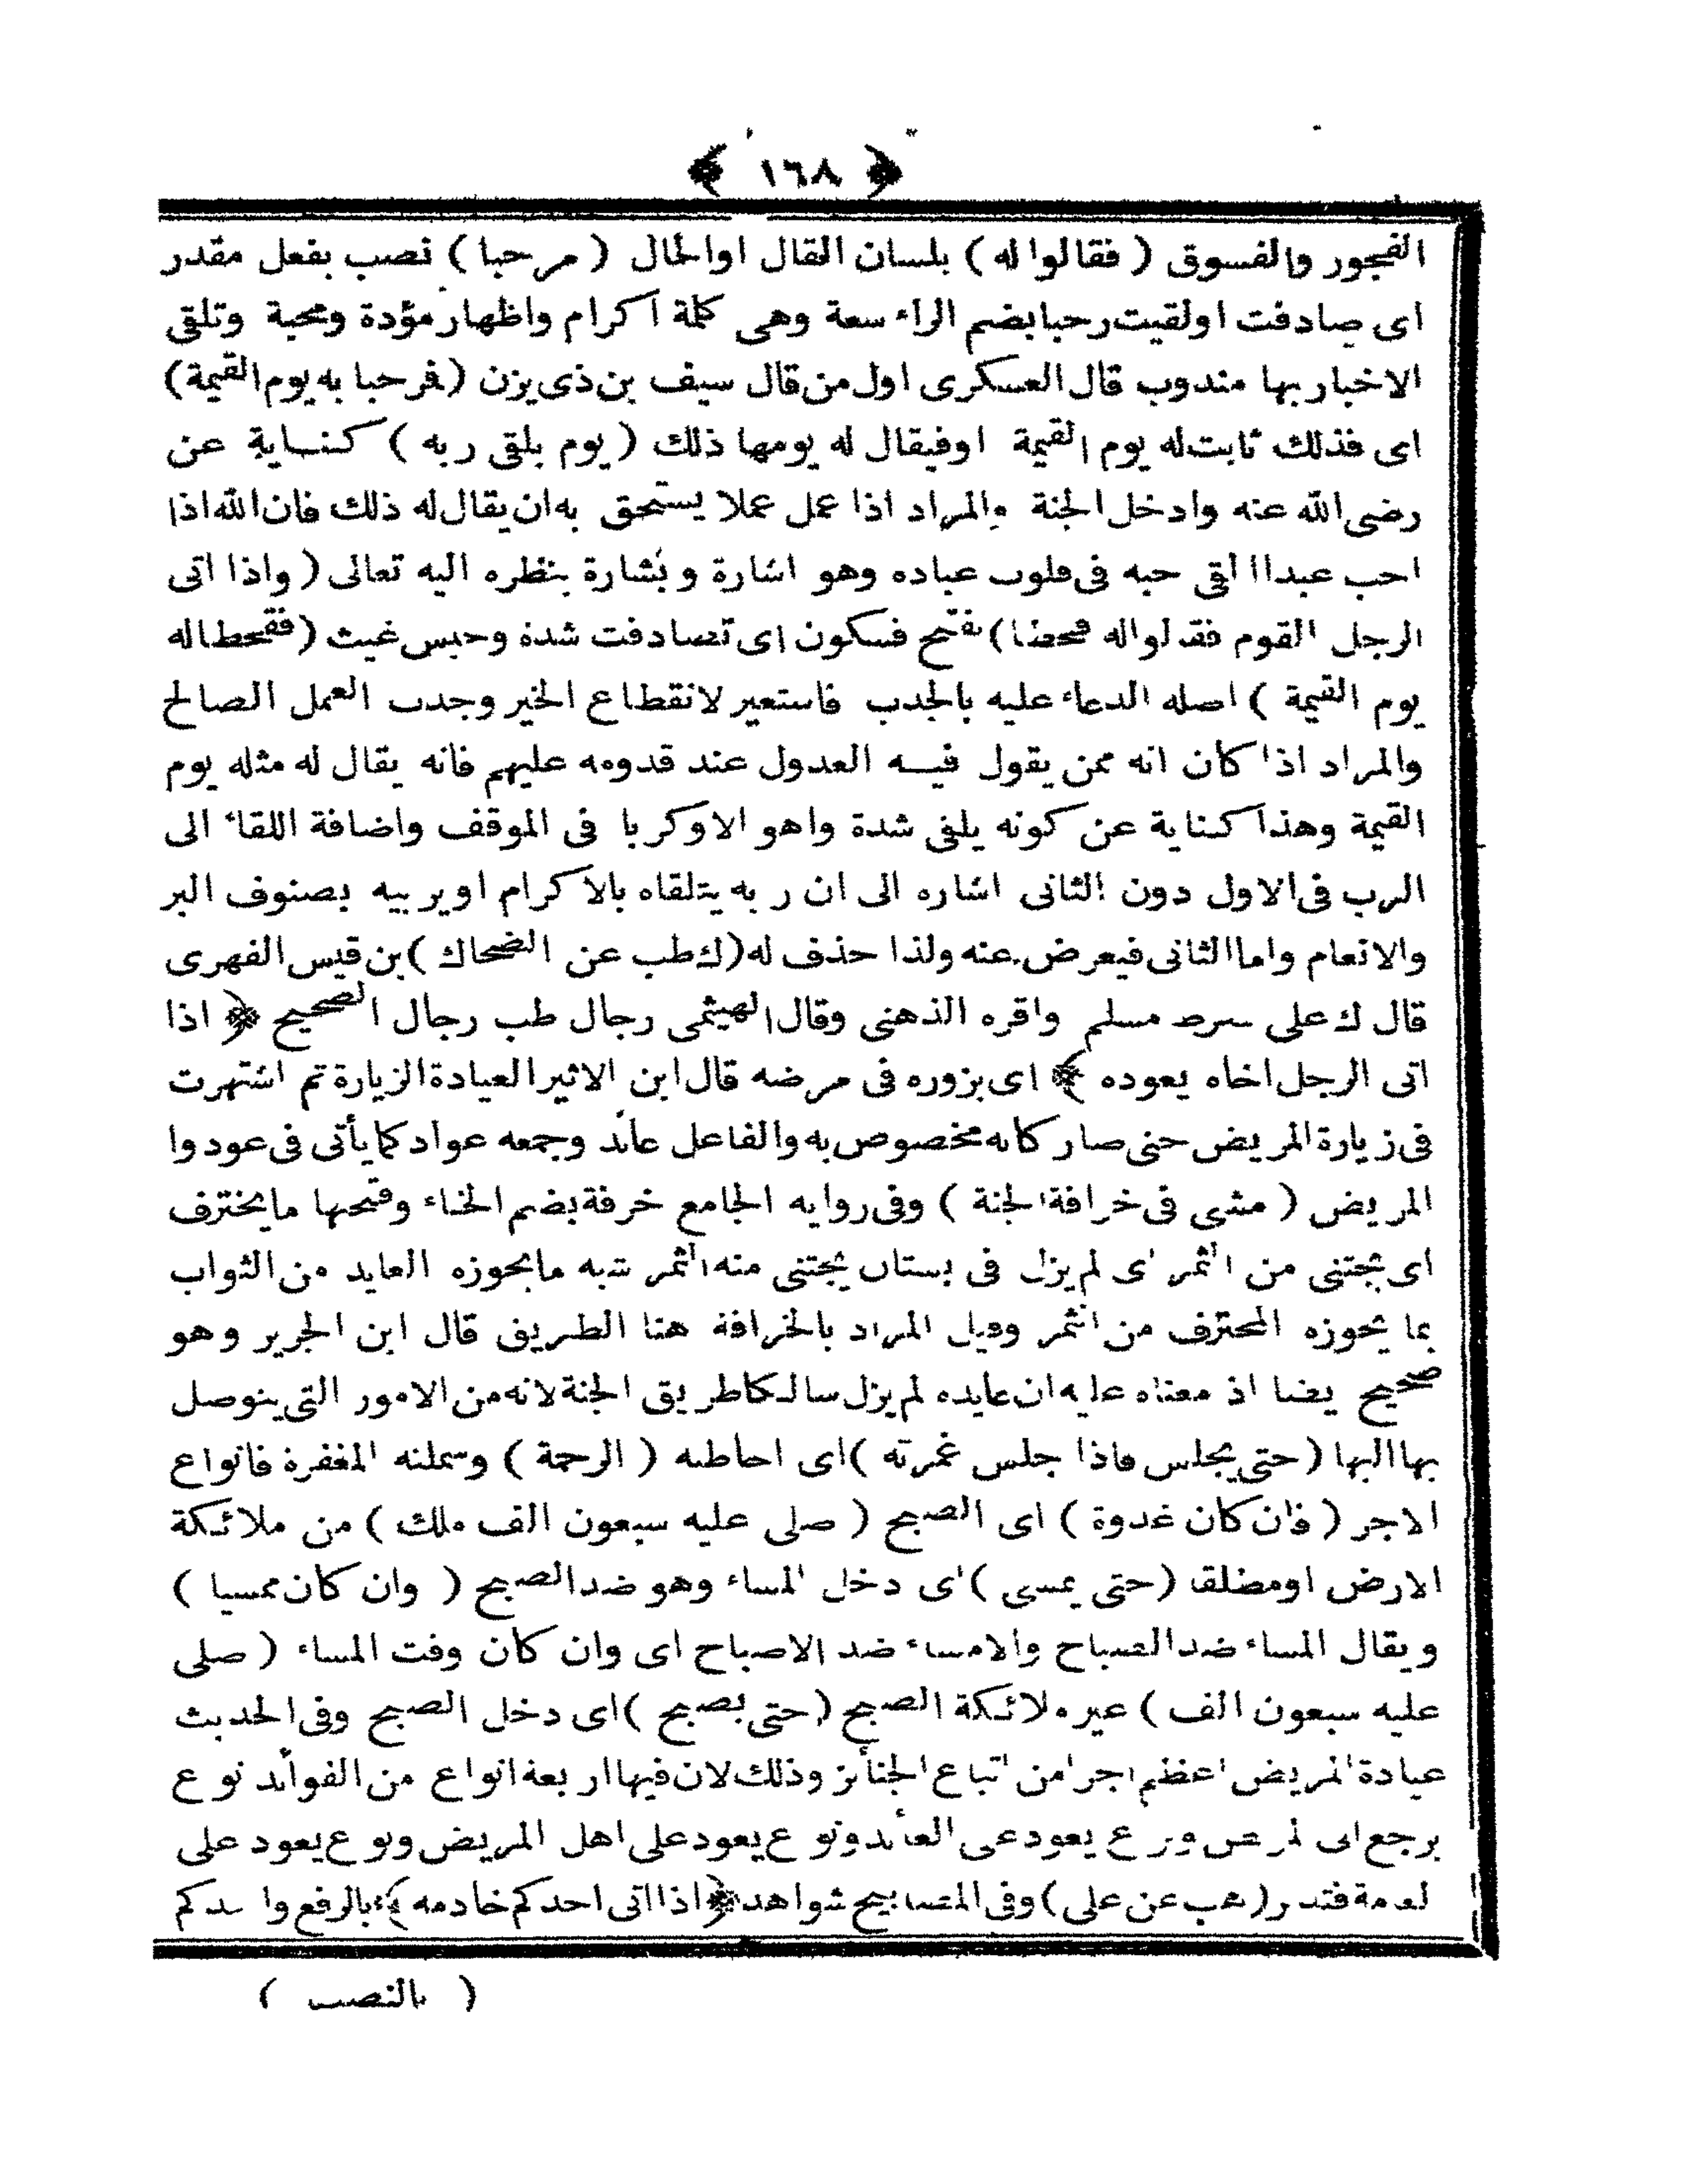 ﴿ ١٦٨ ﴾
الفجور والفسوق ( فقالوا له ) بلسان القال اوالحال ( مرحبا ) نصب بفعل مقدر
اى صادفت اولقيت رحبا بضم الراء سعة وهى كلمة اكرام واظهار مؤدة ومحبة وتلقى
الاخبار بها مندوب قال العسكرى اول من قال سيف بن ذى يزن ( فمرحبا به يوم القيمة )
اى فذلك ثابت له يوم القيمة اوفيقال له يومها ذلك ( يوم يلقى ربه ) كنـاية عن
رضى الله عنه وادخل الجنة والمراد اذا عمل عملا يستحق به ان يقال له ذلك فان الله اذا
احب عبدا القى حبه فى قلوب عباده وهو اشارة وبشارة بنظره اليه تعالى ( واذا اتى
الرجل القوم فقالواله قحطا ) بفتح فسكون اى تصادفت شدة وحبس غيث ( فقحطا له
يوم القيمة ) اصله الدعاء عليه بالجدب فاستعير لانقطاع الخير وجدب العمل الصالح
والمراد اذا كان انه ممن يقول فيـه العدول عند قدومه عليهم فانه يقال له مثله يوم
القيمة وهذا كناية عن كونه يلقى شدة واهوالا وكربا فى الموقف واضافة اللقاء الى
الرب فى الاول دون الثانى اشاره الى ان ربه يتلقاه بالاكرام اويربيه بصنوف البر
والانعام واما الثانى فيعرض عنه ولذا حذف له ( ك طب عن الضحاك ) بن قيس الفهرى
قال ك على شرط مسلم واقره الذهبى وقال الهيثمى رجال طب رجال الصحيح ﴿ اذا
اتى الرجل اخاه يعوده ﴾ اى يزوره فى مرضه قال ابن الاثير العيادة الزيارة ثم اشتهرت
فى زيارة المريض حتى صار كانه مخصوص به والفاعل عائد وجمعه عواد كما يأتى فى عودوا
المريض ( مشى فى خرافة الجنة ) وفى روايه الجامع خرفة بضم الخاء وفتحها ما يخترف
اى يجتنى من الثمر اى لم يزل فى بستان يجتنى منه الثمر شبه ما يحوزه العايد من الثواب
بما يحوزه المحترف من الثمر وقيل المراد بالخرافة هنا الطريق قال ابن الجرير وهو
صحيح يضا اذ معناه عليه ان عايده لم يزل سالكا طريق الجنة لانه من الامور التى يتوصل
بها اليها ( حتى يجلس فاذا جلس غمرته ) اى احاطته ( الرحمة ) وشملته المغفرة فانواع
الاجر ( فان كان غدوة ) اى الصبح ( صلى عليه سبعون الف ملك ) من ملائكة
الارض اومطلقا ( حتى يمسى ) اى دخل المساء وهو ضد الصبح ( وان كان ممسيا )
ويقال المساء ضد الصباح والامساء ضد الاصباح اى وان كان وقت المساء ( صلى
عليه سبعون الف ) غير ملائكة الصبح ( حتى يصبح ) اى دخل الصبح وفى الحديث
عيادة المريض اعظم اجرا من اتباع الجنائز وذلك لان فيها اربعة انواع من الفوائد نوع
يرجع الى المريض ونوع يعود على العائد ونوع يعود على اهل المريض ونوع يعود على
العامة فتدبر ( هب عن على ) وفى المصابيح شواهد ﴿ اذا اتى احدكم خادمه ﴾ بالرفع واحدكم
( بالنصب )